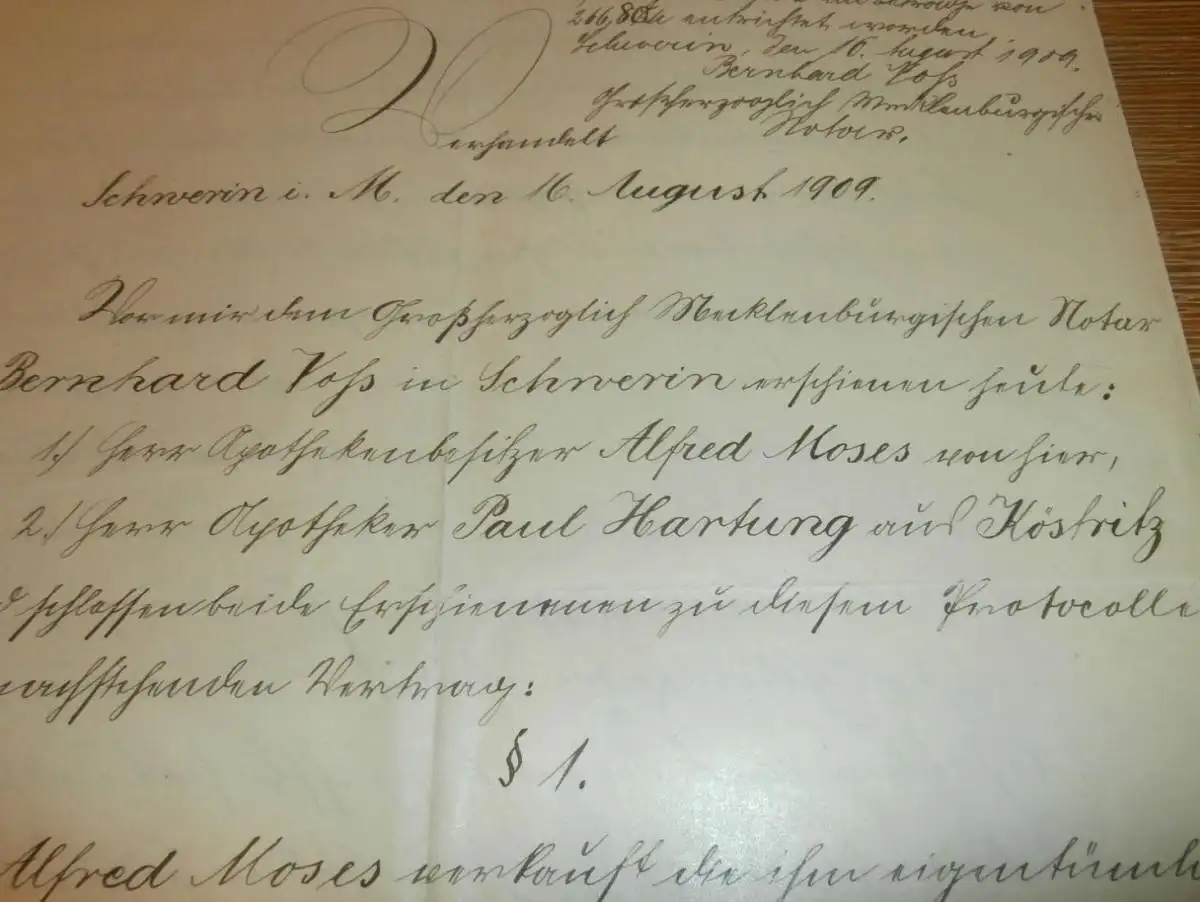 im Betrage von
266,80 M entrichtet worden
Schwerin, den 16. August 1909.
Bernhard Voß
Großherzoglich Mecklenburgischer
Notar.
Verhandelt
Schwerin i. M. den 16. August 1909.
Vor mir dem Großherzoglich Mecklenburgischen Notar
Bernhard Voß in Schwerin erschienen heute:
1.) Herr Apothekenbesitzer Alfred Moses von hier,
2.) Herr Apotheker Paul Hartung aus Köstritz
schlossen beide Erschienenen zu diesem Protocolle
nachstehenden Vertrag:
§ 1.
Alfred Moses verkauft die ihm eigentüml